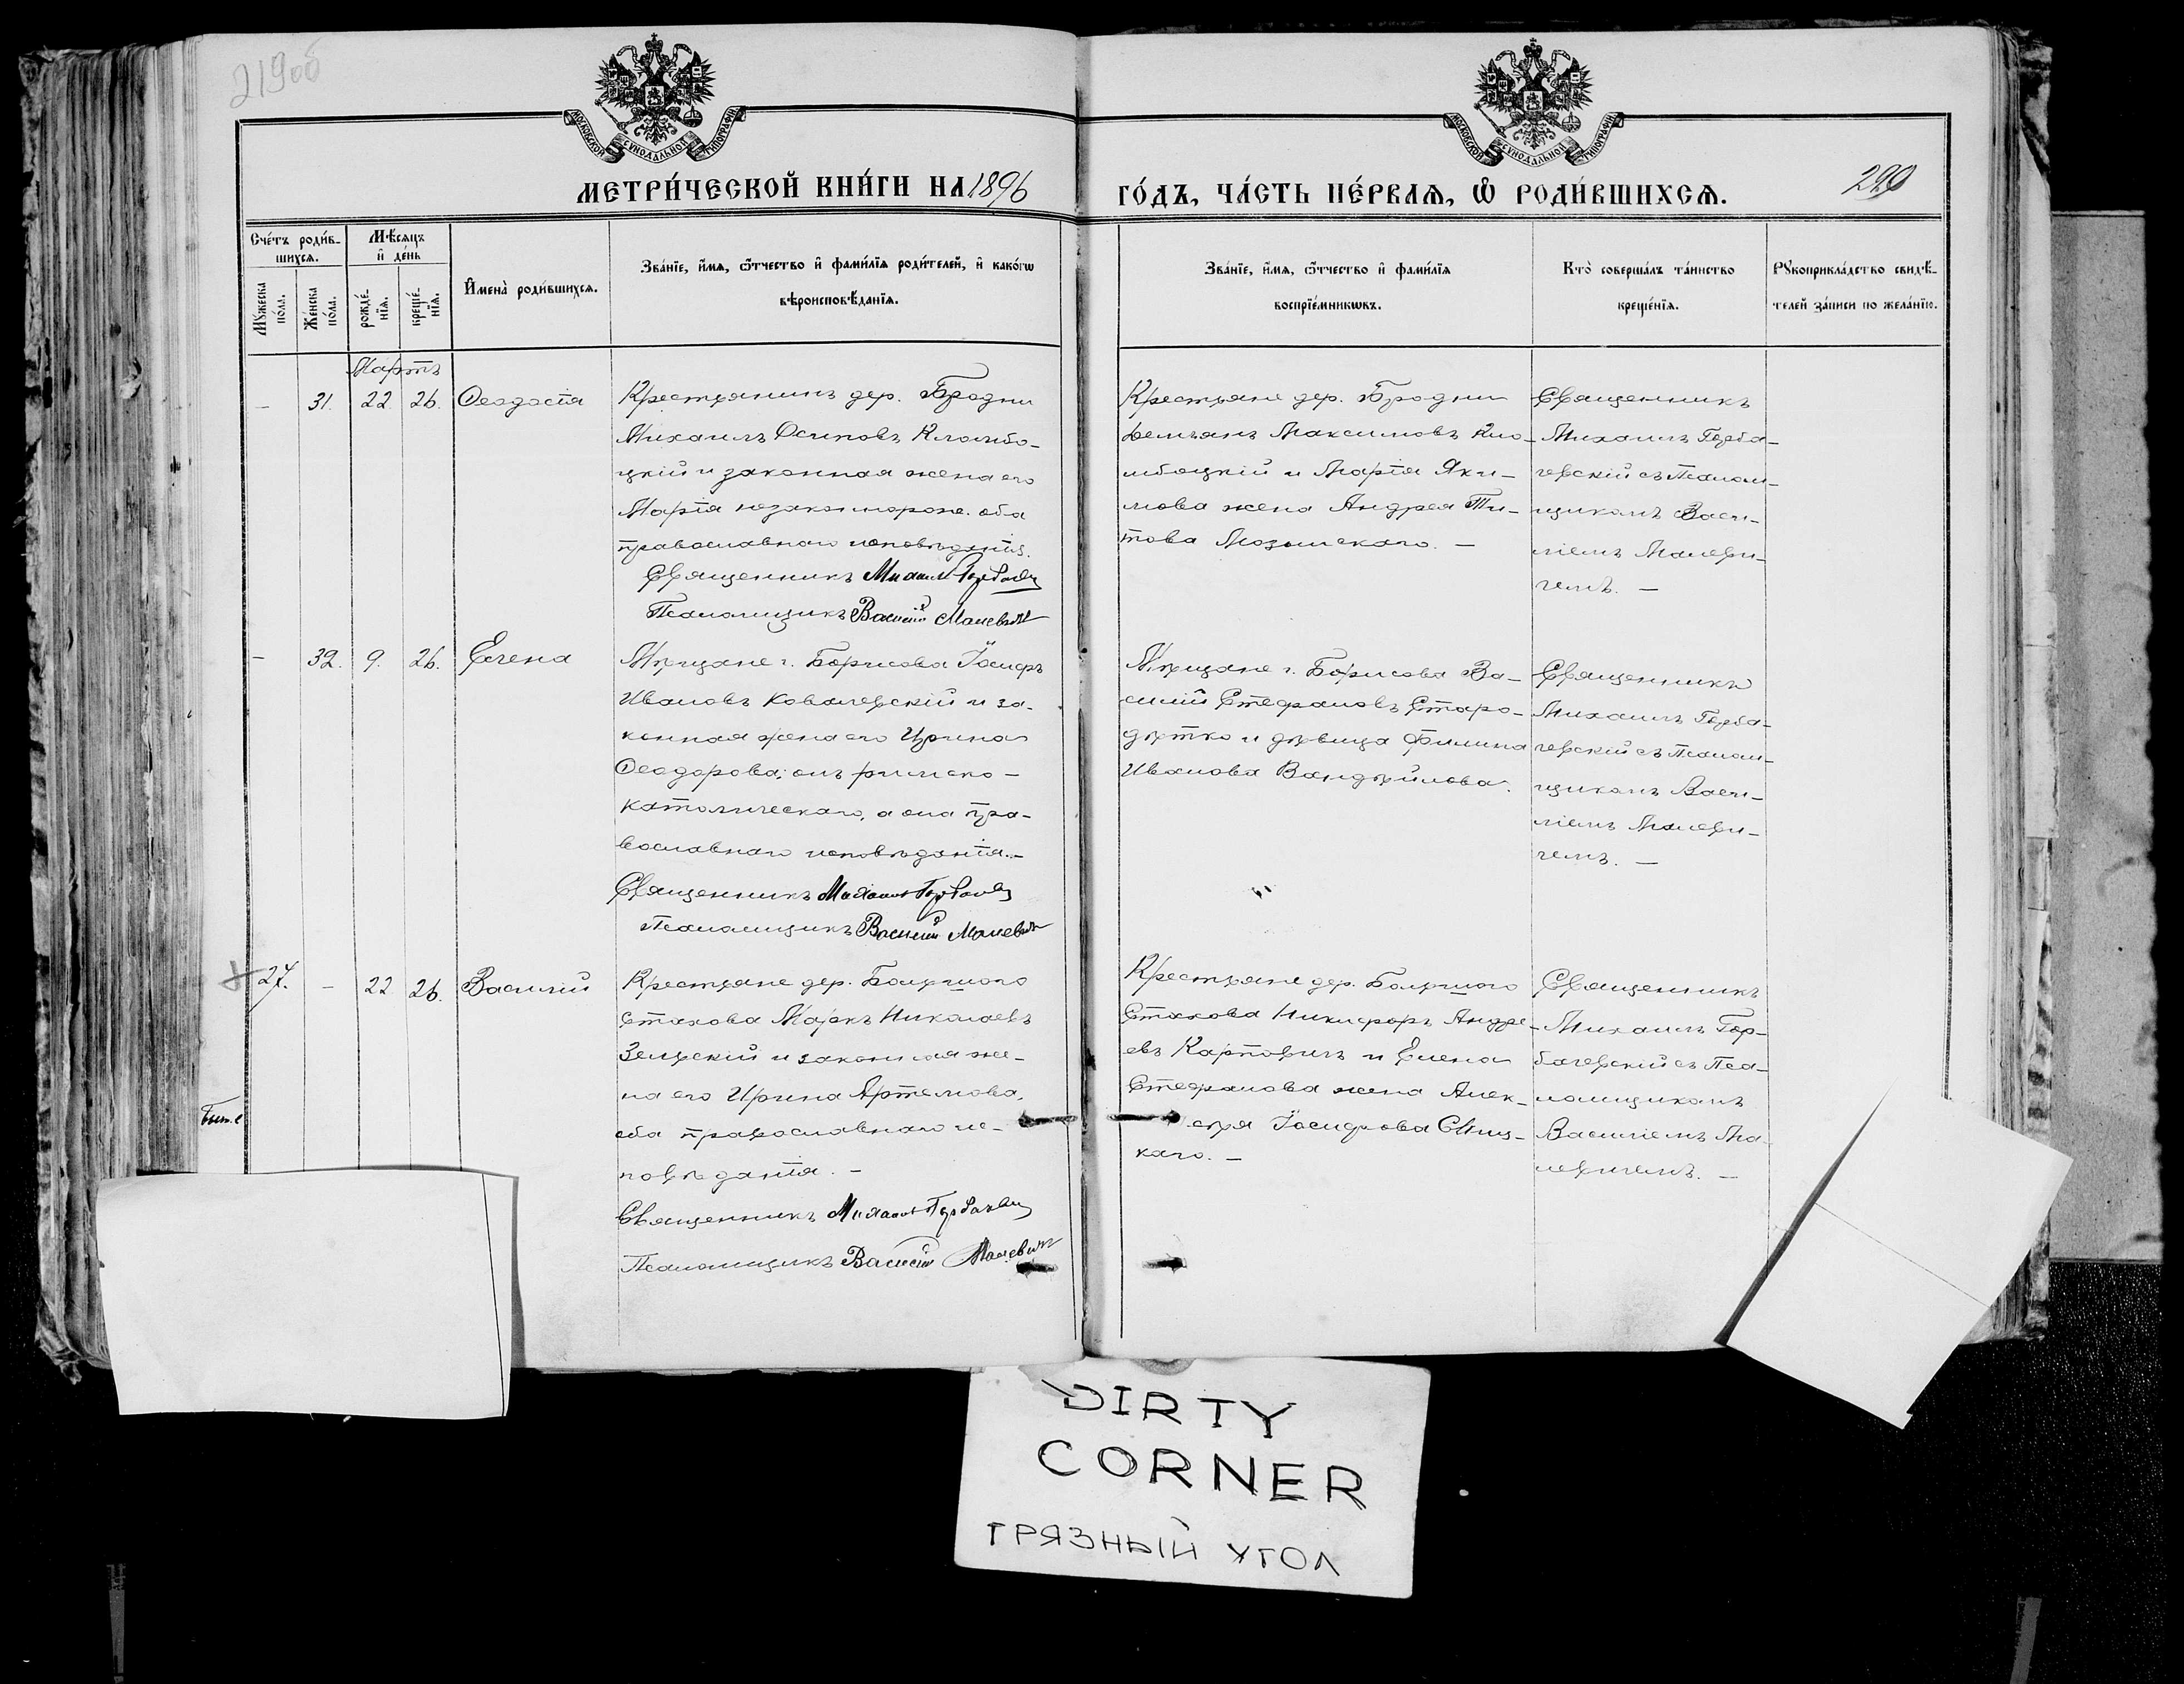 219 об
МОСКОВСКОЙ СУНОДАЛЬНОЙ ТИПОГРАФІИ
МОСКОВСКОЙ СУНОДАЛЬНОЙ ТИПОГРАФІИ
МЕТРИ́ЧЕСКОЙ КНИ́ГИ НА 1896
ГО́ДЪ, ЧА́СТЬ ПЕ́РВАѦ, Ѽ РОДИ́ВШИХСѦ.
220
Сче́тъ роди́в-
шихсѧ.
Мꙋ́жеска по́ла.
Же́нска по́ла.
Мѣ́сѧцъ и де́нь
рожде́-
нїѧ.
креще́-
нїѧ.
И҆мена̀ роди́вшихсѧ.
Зва́нїе, и҆́мѧ, ѻ҆́тчество и҆ фами́лїѧ роди́телей, и҆ како́гѡ
вѣроисповѣ́данїѧ.
Зва́нїе, и҆́мѧ, ѻ҆́тчество и҆ фами́лїѧ
воспрїе́мникѡвъ.
Кто̀ соверша́лъ та́инство
креще́нїѧ.
Рꙋкоприкла́дство свидѣ́-
телей за́писи по жела́нїю.
Мартъ
– 31. 22. 26. Ѳеодосія
Крестьянинъ дер. Бродни
Михаилъ Осиповъ
цкій и законная жена его
Марія незаконнорож. оба
православнаго исповѣданія.
Священникъ Михаилъ
Псаломщикъ Василій Малевич
Крестьяне дер. Бродни
Демьянъ Максимовъ
и Марія Яки-
мова жена Андрея Ти-
това
Священникъ
Михаилъ Горба-
чевскій съ Псалом-
щикомъ Васи-
ліемъ Малеви-
чемъ. –
– 32. 9. 26. Елена
Мѣщане г. Борисова Іосифъ
Ивановъ Ковалевскій и за-
конная жена его Ирина
Ѳеодорова; онъ римско-
католическаго, а она пра-
вославнаго исповѣданія. –
Священникъ Михаилъ
Псаломщикъ Василій Малевич
Мѣщане г. Борисова Ва-
силій Стефановъ Старо-
и дѣвица
Иванова
Священникъ
Михаилъ Горба-
чевскій съ Псалом-
щикомъ Васи-
ліемъ Малеви-
чемъ. –
27. – 22. 26. Василій
Крестьяне дер. Большого
Стахова Маркъ Николаевъ
Зенскій и законная же-
на его Ирина Артемова,
оба православнаго ис-
повѣданія. –
Священникъ Михаилъ
Псаломщикъ Василій Малевич
Крестьяне дер. Большого
Стахова Никифоръ Андре-
евъ Карповичъ и Елена
Стефанова жена Алек-
сѣя Іосифова
каго. –
Священникъ
Михаилъ Гор-
бачевскій съ Пса-
ломщикомъ
Василіемъ Ма-
левичемъ. –
DIRTY
CORNER
ГРЯЗНЫЙ УГОЛ